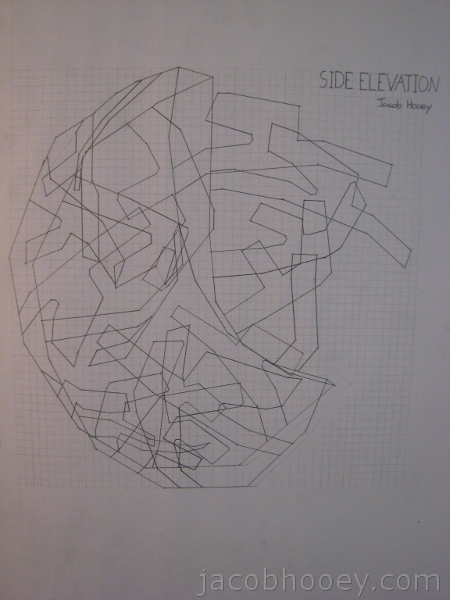 SIDE ELEVATION
Jacob Hooey
jacobhooey.com